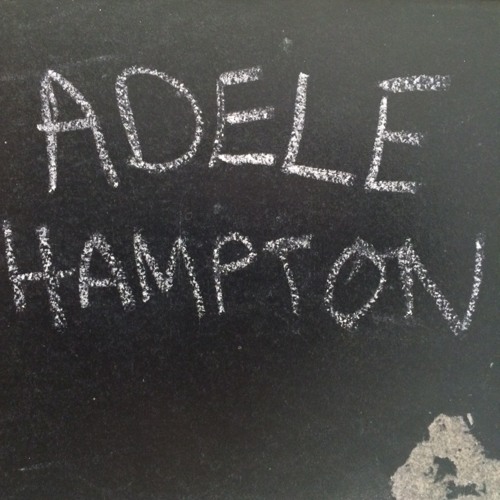 ADELE
HAMPTON